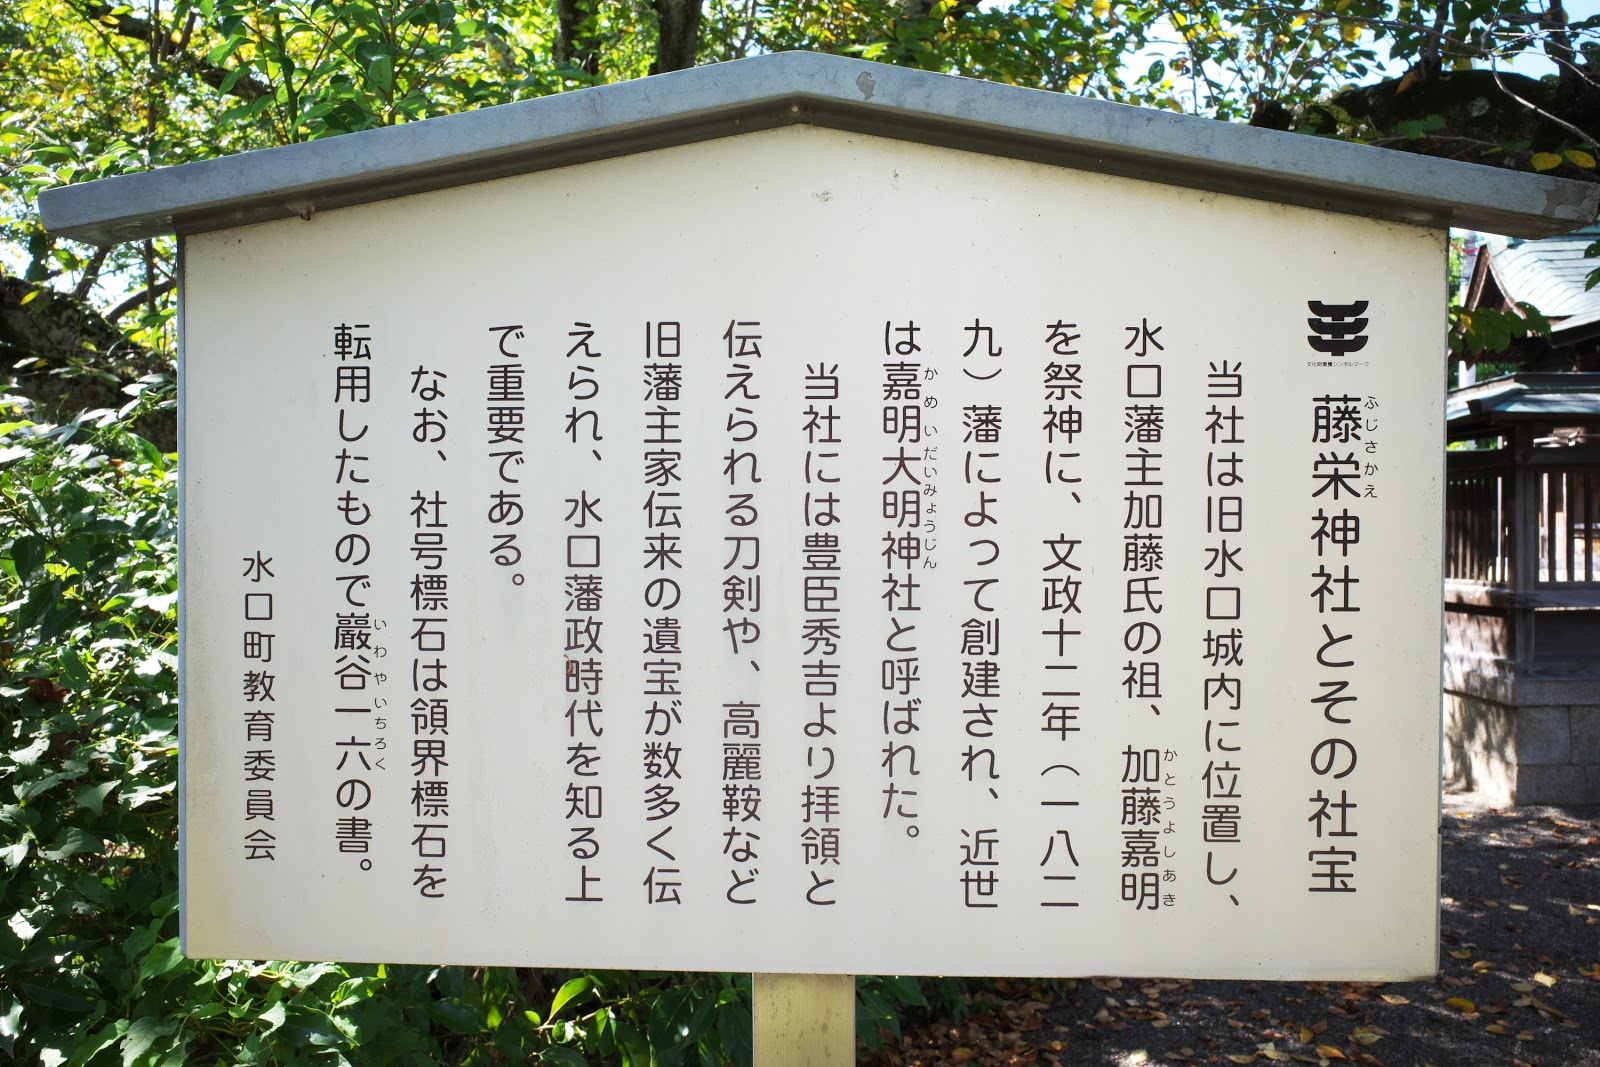 文化財愛護シンボルマーク
藤栄神社とその社宝
ふじさかえ
当社は旧水口城内に位置し、
水口藩主加藤氏の祖、加藤嘉明
かとうよしあき
を祭神に、文政十二年（一八二
九）藩によって創建され、近世
は嘉明大明神社と呼ばれた。
かめいだいみょうじん
当社には豊臣秀吉より拝領と
伝えられる刀剣や、高麗鞍など
旧藩主家伝来の遺宝が数多く伝
えられ、水口藩政時代を知る上
で重要である。
なお、社号標石は領界標石を
転用したもので巖谷一六の書。
いわやいちろく
水口町教育委員会